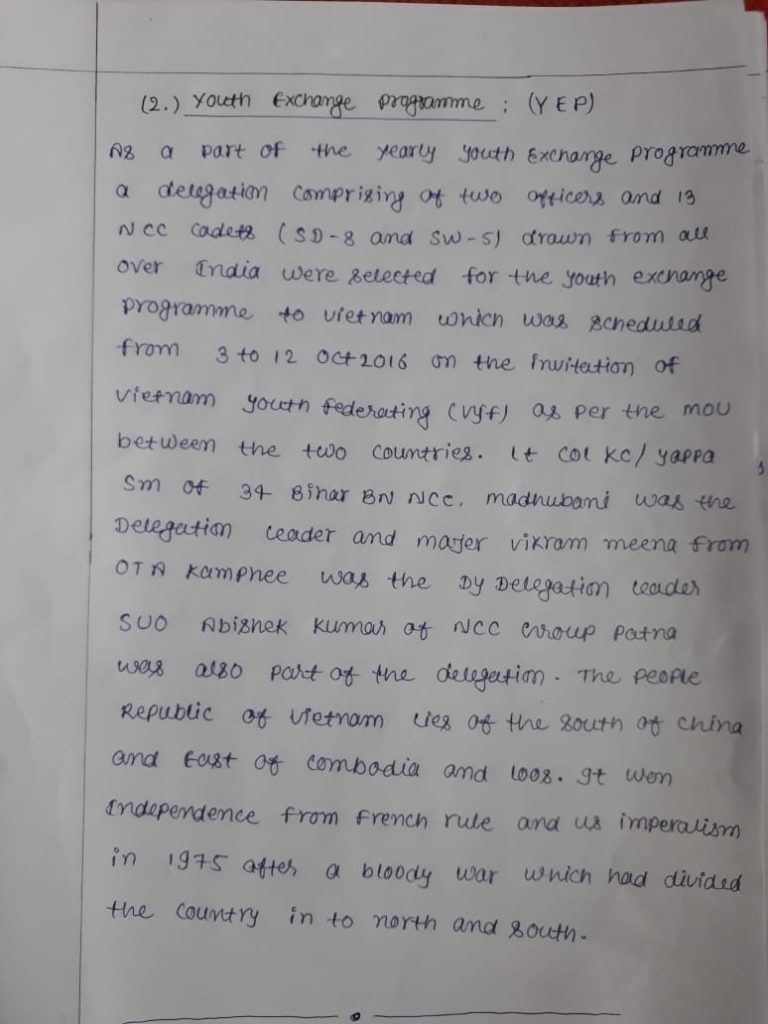 (2.) Youth Exchange programme : (YEP)
As a part of the yearly youth Exchange programme
a delegation comprising of two officers and 13
NCC cadets (SD-8 and SW-5) drawn from all
over India were selected for the youth exchange
programme to vietnam which was scheduled
from 3 to 12 Oct 2016 on the invitation of
vietnam youth federating (vyf) as per the mou
between the two countries. Lt Col KC/ yappa
Sm of 34 Bihar BN NCC, madhubani was the
Delegation leader and majer vikram meena from
OTA Kamphee was the Dy Delegation leader
SUO Abishek Kumar of NCC Group patna
was also part of the delegation. The people
Republic of vietnam lies of the south of china
and East of combodia and loos. It won
Independence from french rule and us imperalism
in 1975 after a bloody war which had divided
the country in to north and south.